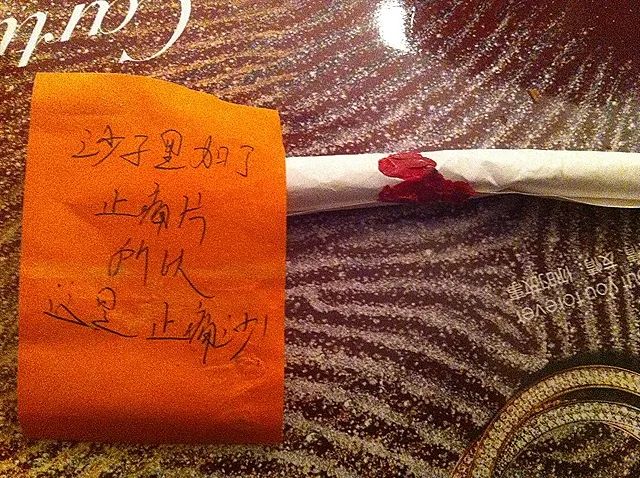 沙子里加了
止痛片
所以
这是止痛沙
Cart
you forever
反情